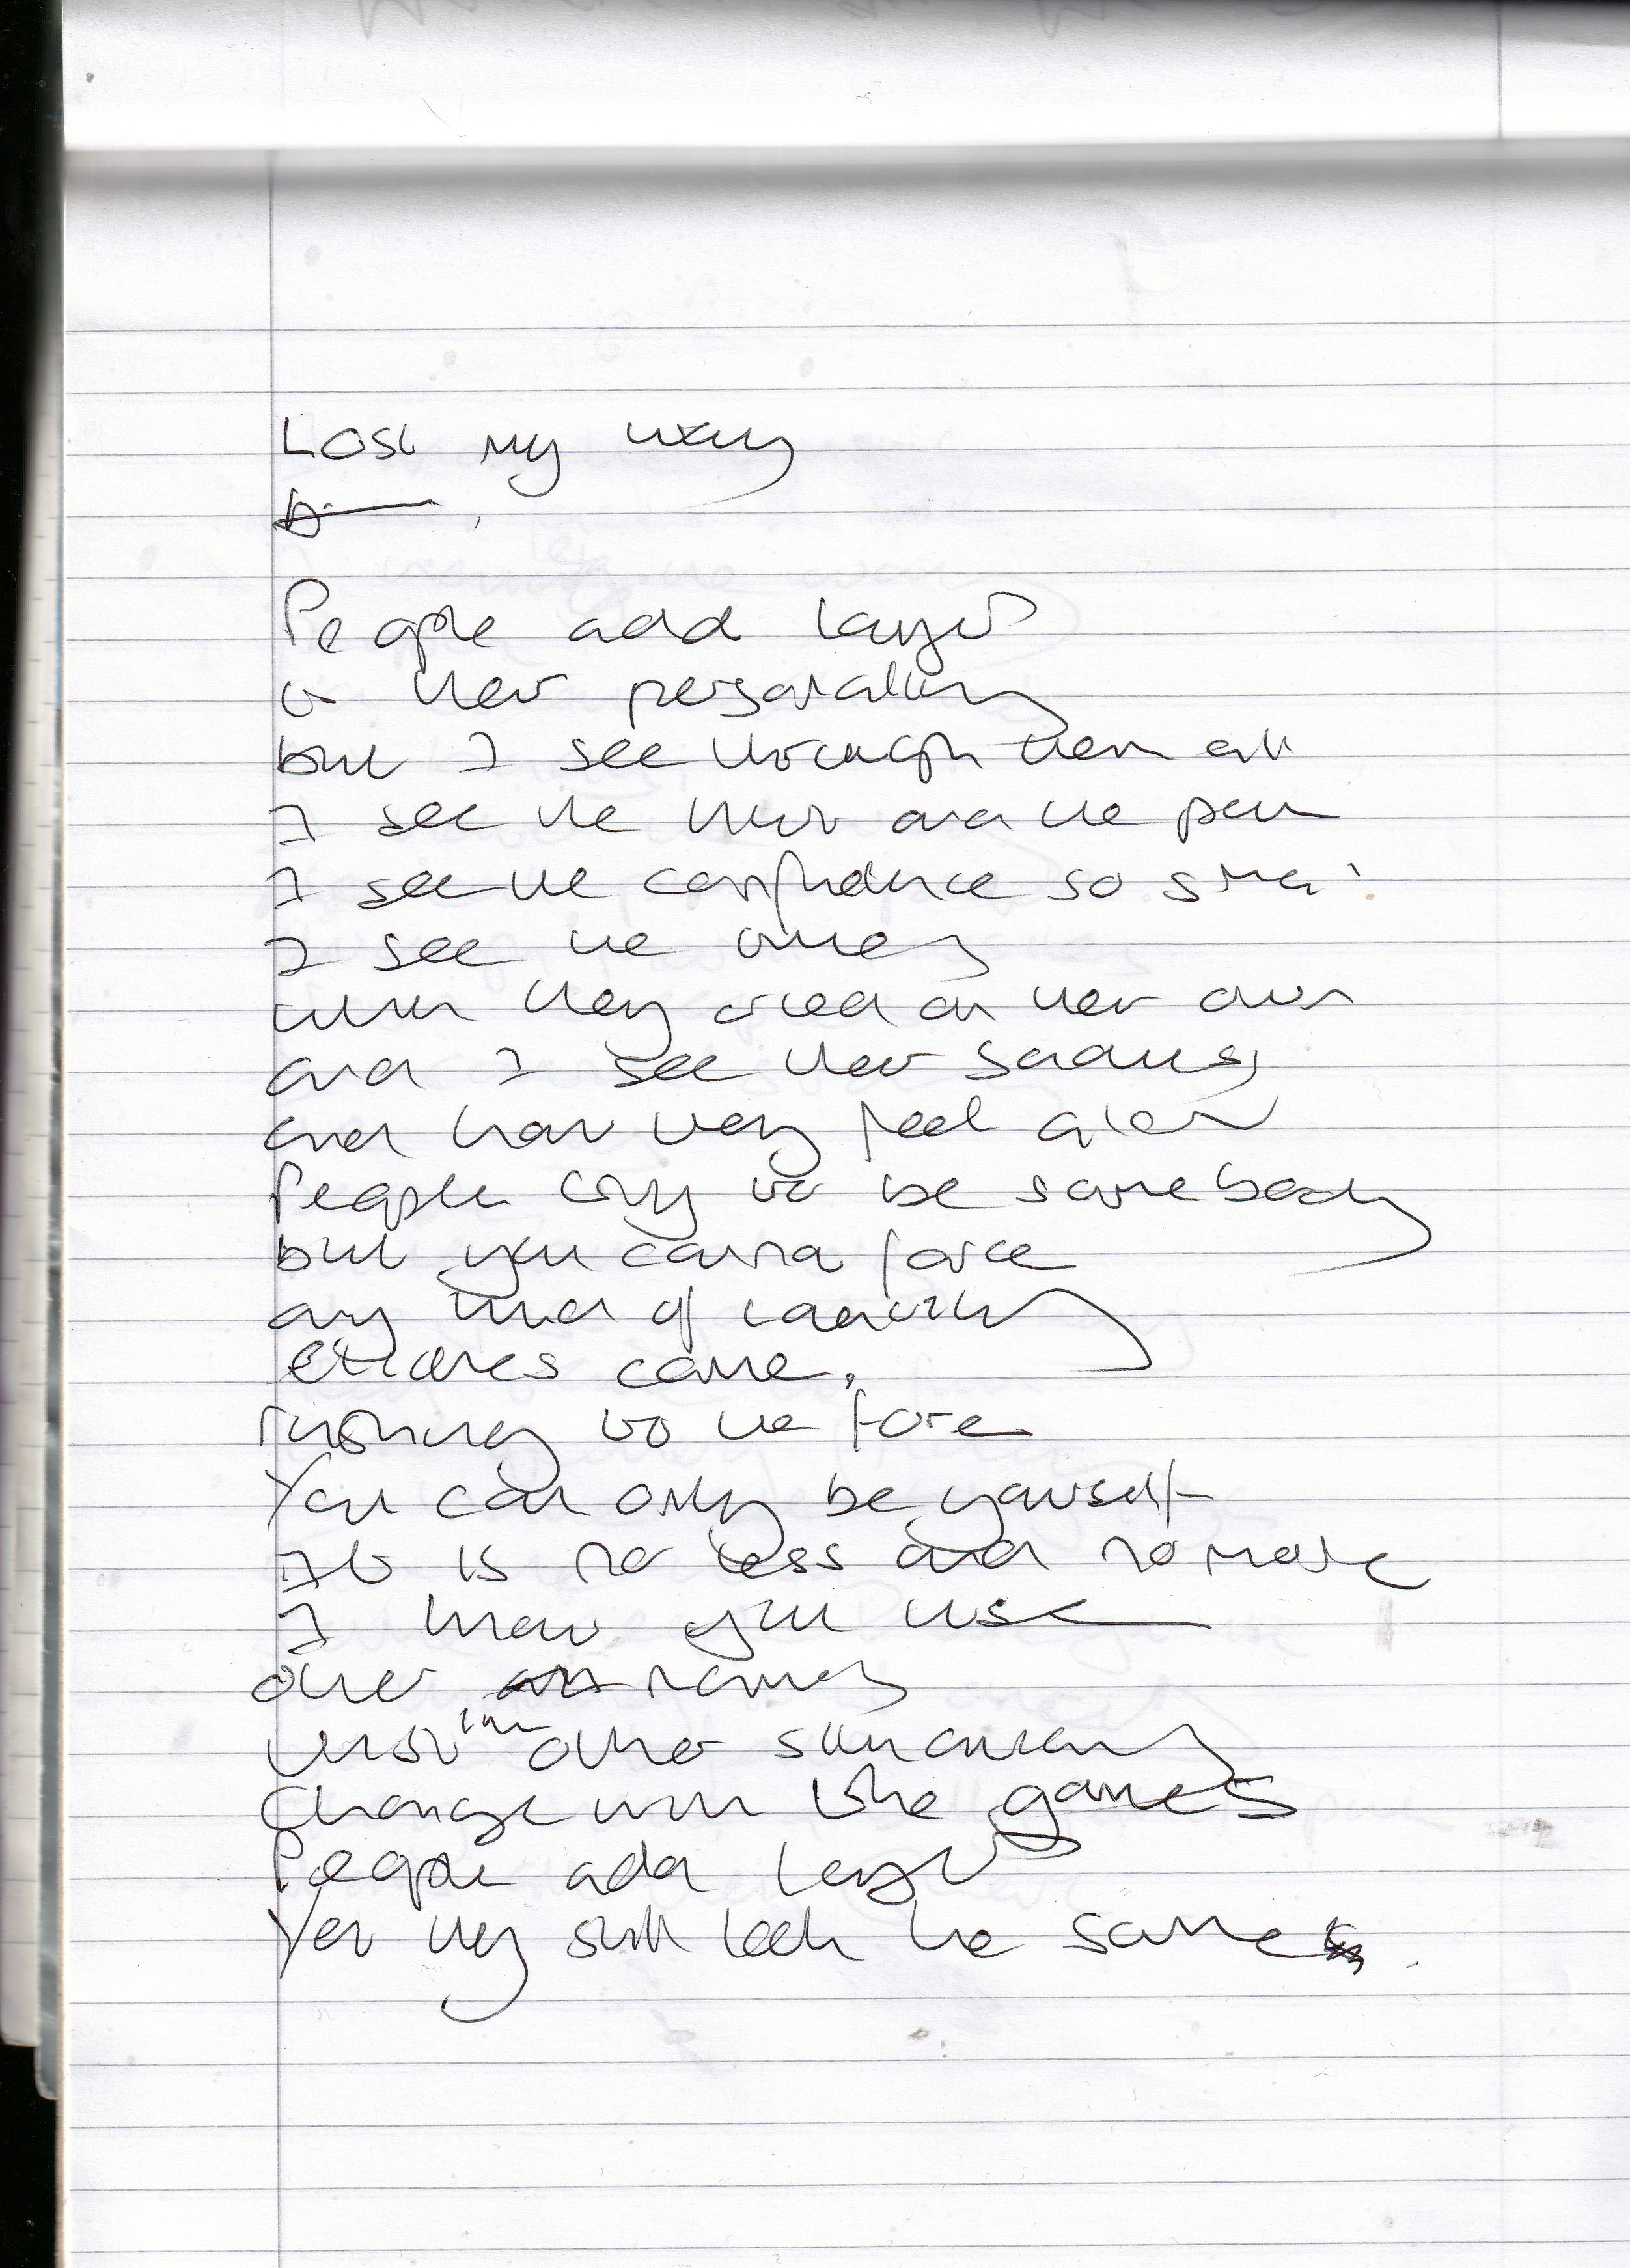 Lost my way
People add layers
to their personality
but I see through them all
I see the hurt and the pain
I see the confidence so small
I see the
when they cried on their own
and I see their
and how they feel alone
People try to be somebody
but you canna force
any kind of
come,
rushing to the fore
You can only be yourself
It is no less and no more
I know you use
other names
in other
Change with the games
People add layers
Yet they still look the same